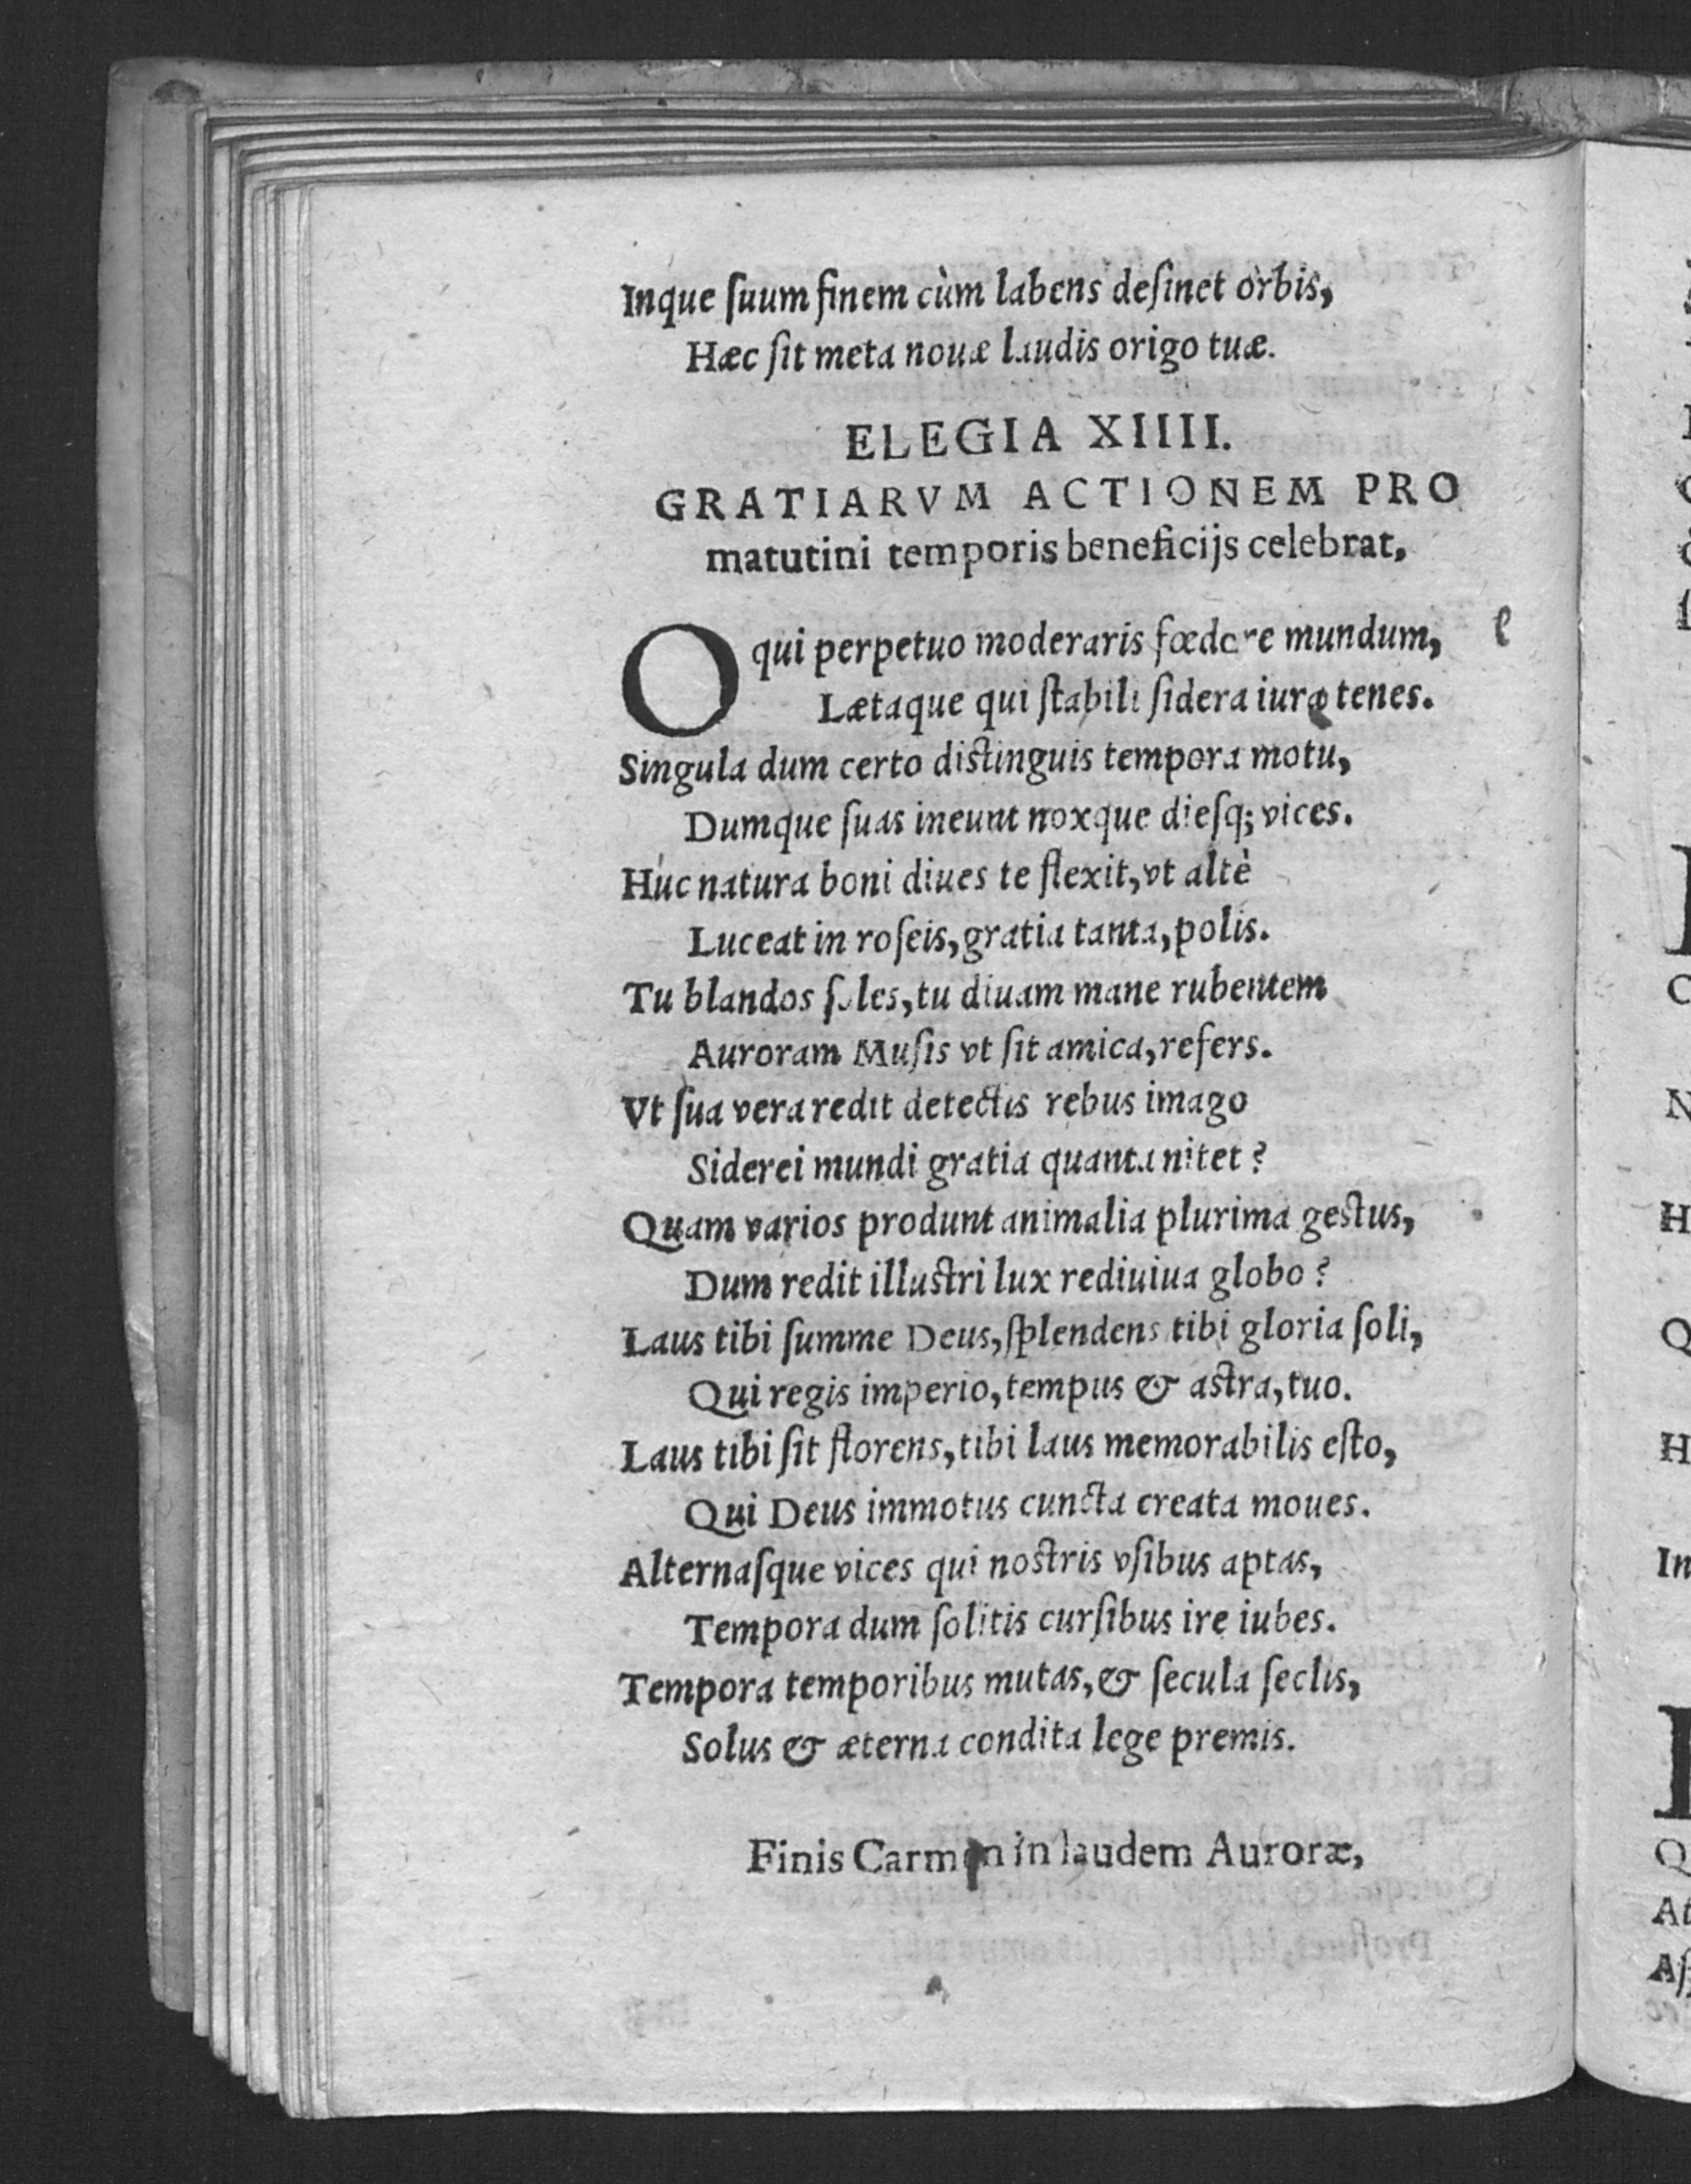 Inque ſuum finem cùm labens deſinet orbis,
Hæc ſit meta nouæ laudis origo tuæ.
ELEGIA XIIII.
GRATIARVM ACTIONEM PRO
matutini temporis beneficijs celebrat,
O qui perpetuo moderaris fœdere mundum, e
Lætaque qui ſtabili ſidera iure tenes.
Singula dum certo diſtinguis tempora motu,
Dumque ſuas ineunt noxque dieſq; vices.
Húc natura boni diues te flexit, vt altè
Luceat in roſeis, gratia tanta, polis.
Tu blandos ſoles, tu diuam mane rubentem
Auroram Muſis vt ſit amica, refers.
Vt ſua vera redit detectis rebus imago
Siderei mundi gratia quanta nitet?
Quam varios produnt animalia plurima geſtus,
Dum redit illuſtri lux rediuiua globo?
Laus tibi ſumme Deus, ſplendens tibi gloria ſoli,
Qui regis imperio, tempus & aſtra, tuo.
Laus tibi ſit florens, tibi laus memorabilis eſto,
Qui Deus immotus cuncta creata moues.
Alternaſque vices qui noſtris vſibus aptas,
Tempora dum ſolitis curſibus ire iubes.
Tempora temporibus mutas, & ſecula ſeclis,
Solus & æterna condita lege premis.
Finis Carmen in laudem Auroræ,